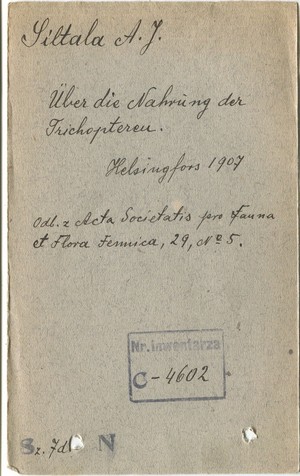 Siltala A. J.
Über die Nahrung der
Trichopteren.
Helsingfors 1907
Odb. z Acta Societatis pro Fauna
et Flora Fennica, 29, № 5.
Nr. inwentarza
C-4602
Sz. 7d N